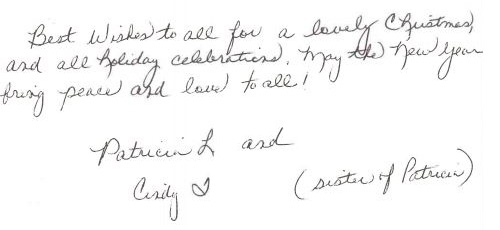 Best Wishes to all for a lovely Christmas,
and all holiday celebrations. May the New Year
bring peace and love to all!
Patricia L and
Cindy ♡
(sister of Patricia)